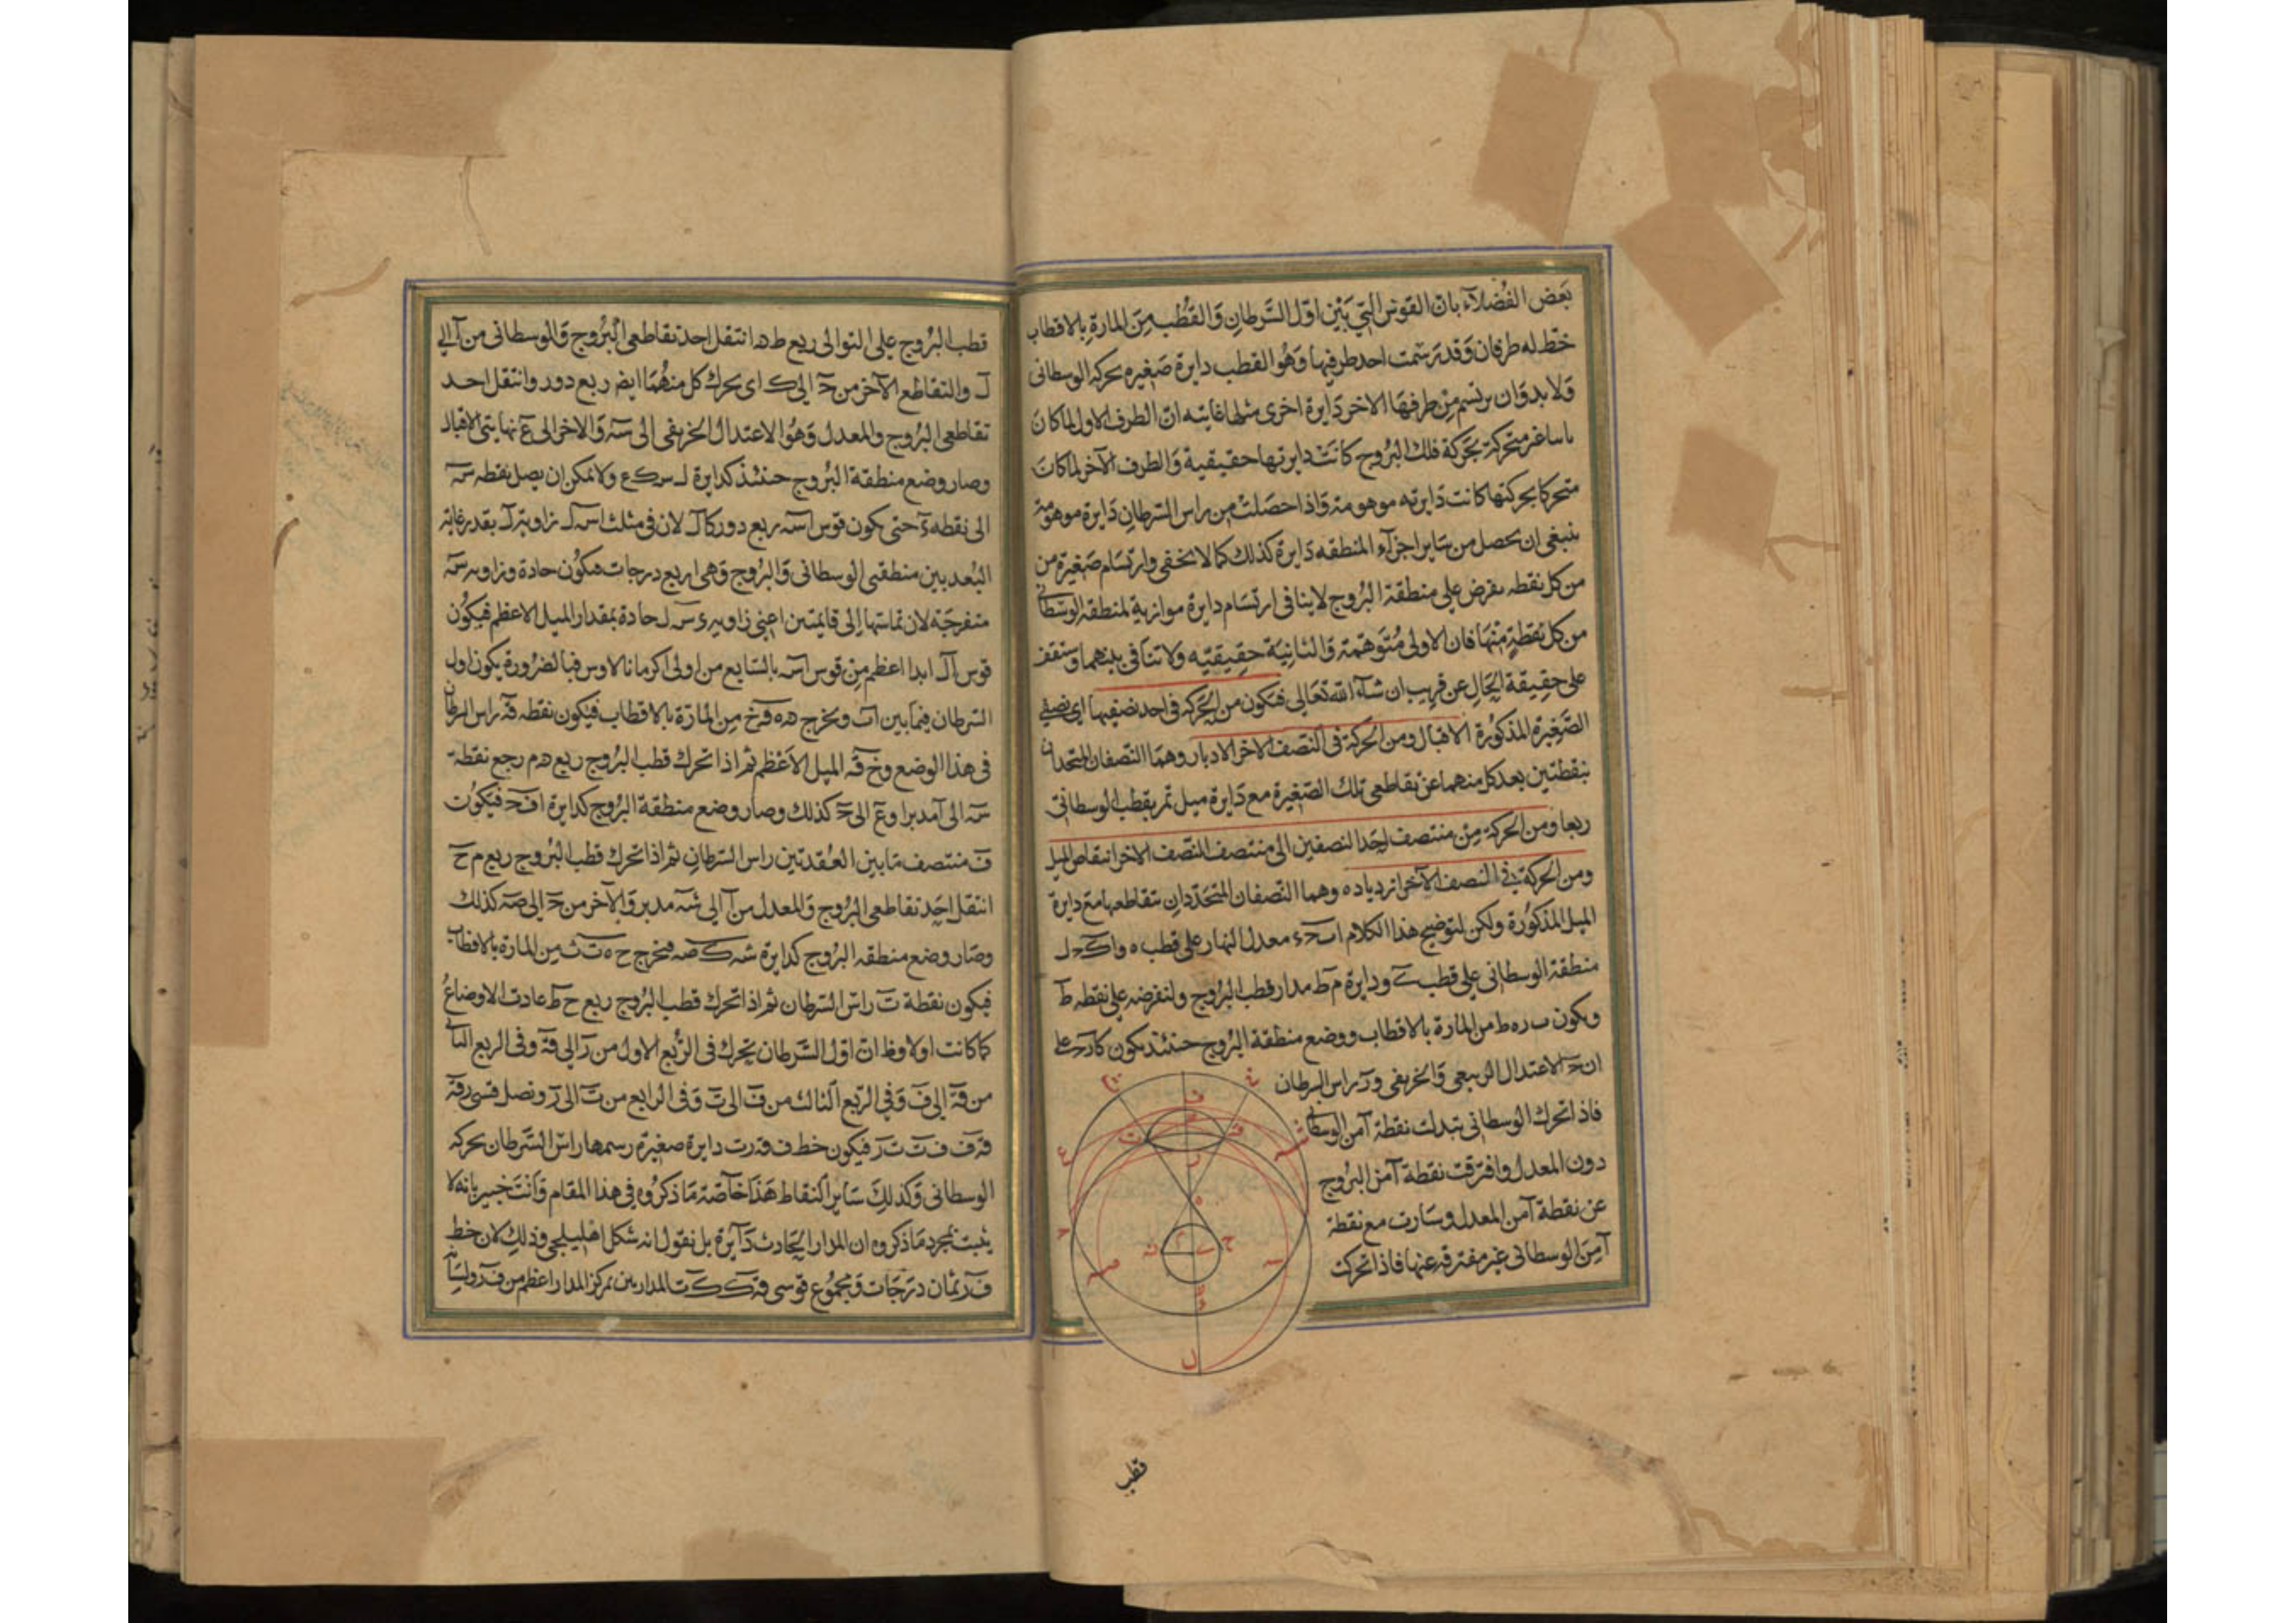 بعض الفضلاء بان القوس التي بين اول السرطان والقطب من المارة بالاقطاب
خط له طرفان وقد رسمت احد طرفيها وهو القطب دايرة صغيرة بحركة الوسطانى
ولا بد وان يرتسم من طرفها الاخر دايرة اخرى مثلها غايته ان الطرف الاول لما كان
متحركة بحركة فلك البروج كانت دايرتها حقيقية والطرف الآخر لما كان
متحركا بحركتها كانت دايرته موهومة واذا حصلت من راس السرطان دايرة موهومة
ينبغى ان يحصل من ساير اجزاء المنطقه دايرة كذلك كما لا يخفى وارتسام صغيرة من
من كل نقطه يفرض على منطقة البروج لا ينافى ارتسام دايرة موازية لمنطقة الوسطانى
من كل نقطة منها فان الاولى متوهمة والثانية حقيقيه ولا تنافى بينهما وستقف
على حقيقة الحال عن قريب ان شاء الله تعالى فتكون من الحركة فى احد نصفيها اى نصفى
الصغيرة المذكورة الاقبال ومن الحركة فى النصف الاخر الادبار وهما النصفان المتحدان
بنقطتين بعد كل منهما عن تقاطعى تلك الصغيرة مع دايرة ميل تمر بقطب الوسطانى
ربعا ومن الحركة من منتصف احد النصفين الى منتصف النصف الاخر انتقاص الميل
ومن الحركة فى النصف الآخر ازدياده وهما النصفان المتحددان بتقاطعها مع دايرة
الميل المذكورة ولكن لتوضيح هذا الكلام ا ب ح ء معدل النهار على قطب ه و ا ك ح ل
منطقة الوسطانى على قطب ى ودايرة م ط مدار قطب البروج ولنفرضه على نقطه ط
ويكون ب ر ه ط من المارة بالاقطاب ووضع منطقة البروج حينئذ يكون كا ر ح على
ان ح ا الاعتدال الربيعى والخريفى و ر راس السرطان
فاذا تحرك الوسطانى تبدلت نقطة آ من الوسطانى
دون المعدل وافترقت نقطة آ من البروج
عن نقطة آ من المعدل وسارت مع نقطة
آ من الوسطانى غير مفترقه عنها فاذا تحركت
قطب
قطب البروج على التوالى ربع ط ه انتقل احد تقاطعى البروج والوسطانى من آ الى
ل والتقاطع الآخر من ح الى ك اى يحرك كل منهما ايض ربع دور وانتقل احد
تقاطعى البروج والمعدل وهو الاعتدال الخريفى الى س والاخر الى ع نهايتى الاقبال
وصار وضع منطقة البروج حينئذ كدايرة ل س ك ع ولا يمكن ان يصل نقطه س
الى نقطه ء حتى يكون قوس ا س ربع دور كا ل لان فى مثلث ا س ل زاوية ل بقدر غاية
البعد بين منطقتى الوسطانى والبروج وهى اربع درجات فتكون حادة وزاوية س
منفرجة لان تمامها الى قايمتين اعنى زاوية ى س ل حادة بمقدار الميل الاعظم فيكون
قوس ا ل ابدا اعظم من قوس ا س بالسابع من اولى اكرمانالاوس فبالضرورة يكون اول
السرطان فيما بين ا ب ويخرج ه ق خ من المارة بالاقطاب فيكون نقطه ق راس السرطان
فى هذا الوضع و خ ق الميل الاعظم ثم اذا تحرك قطب البروج ربع ه م رجع نقطة
س الى آ مدبرا و ع الى ح كذلك وصار وضع منطقة البروج كدايرة ا ف ح فيكون
ف منتصف ما بين العقدتين راس السرطان ثم اذا تحرك قطب البروج ربع م ح
انتقل احد تقاطعى البروج والمعدل من آ الى ش مدبر والآخر من ح الى ص كذلك
وصار وضع منطقه البروج كدايرة ش ك ص فيخرج ح ه ت ث من المارة بالاقطاب
فيكون نقطة ت راس السرطان ثم اذا تحرك قطب البروج ربع ح ط عادت الاوضاع
كما كانت اولا وظ ان اول السرطان يحرك فى الربع الاول من ر الى ق وفى الربع الثانى
من ق الى ف وفى الربع الثالث من ف الى ت وفى الرابع من ت الى ر ونصل قسى ر ق
ق ف ف ت ت ر فيكون خط ف ق ر ت دايرة صغيرة رسمها راس السرطان بحركة
الوسطانى وكذلك ساير النقاط هذا خاصة ما ذكروه فى هذا المقام وانت خبير بانه لا
يثبت بمجرد ما ذكروه ان المدار الحادث دآيرة بل نقول انه شكل اهليلجى وذلك لان خط
ف ر ثمان درجات ومجموع قوسى ق ك ك ت المدارين بمركز المدار اعظم من ف ر